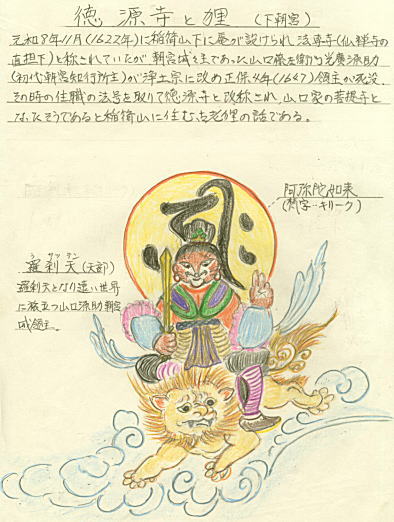 徳源寺と狸 (下朝宮)
元和9年11月(1622年)に稲荷山下に庵が設けられ法専寺(仙禅寺の
直担下)と称されていたが朝宮城々主であった山口藤左衛門光廣源助
(初代朝宮知行所主)が浄土宗に改め正保4年(1647)領主が死没
その時の住職の法号を取りて徳源寺と改称され山口家の菩提寺と
なったそうであると稲荷山に住む古老狸の話である。
阿弥陀如来
(梵字‥キリーク)
ラ サツ テン
羅刹天(天部)
羅刹天となり遠い世界
に旅立つ山口源助朝宮
城領主。